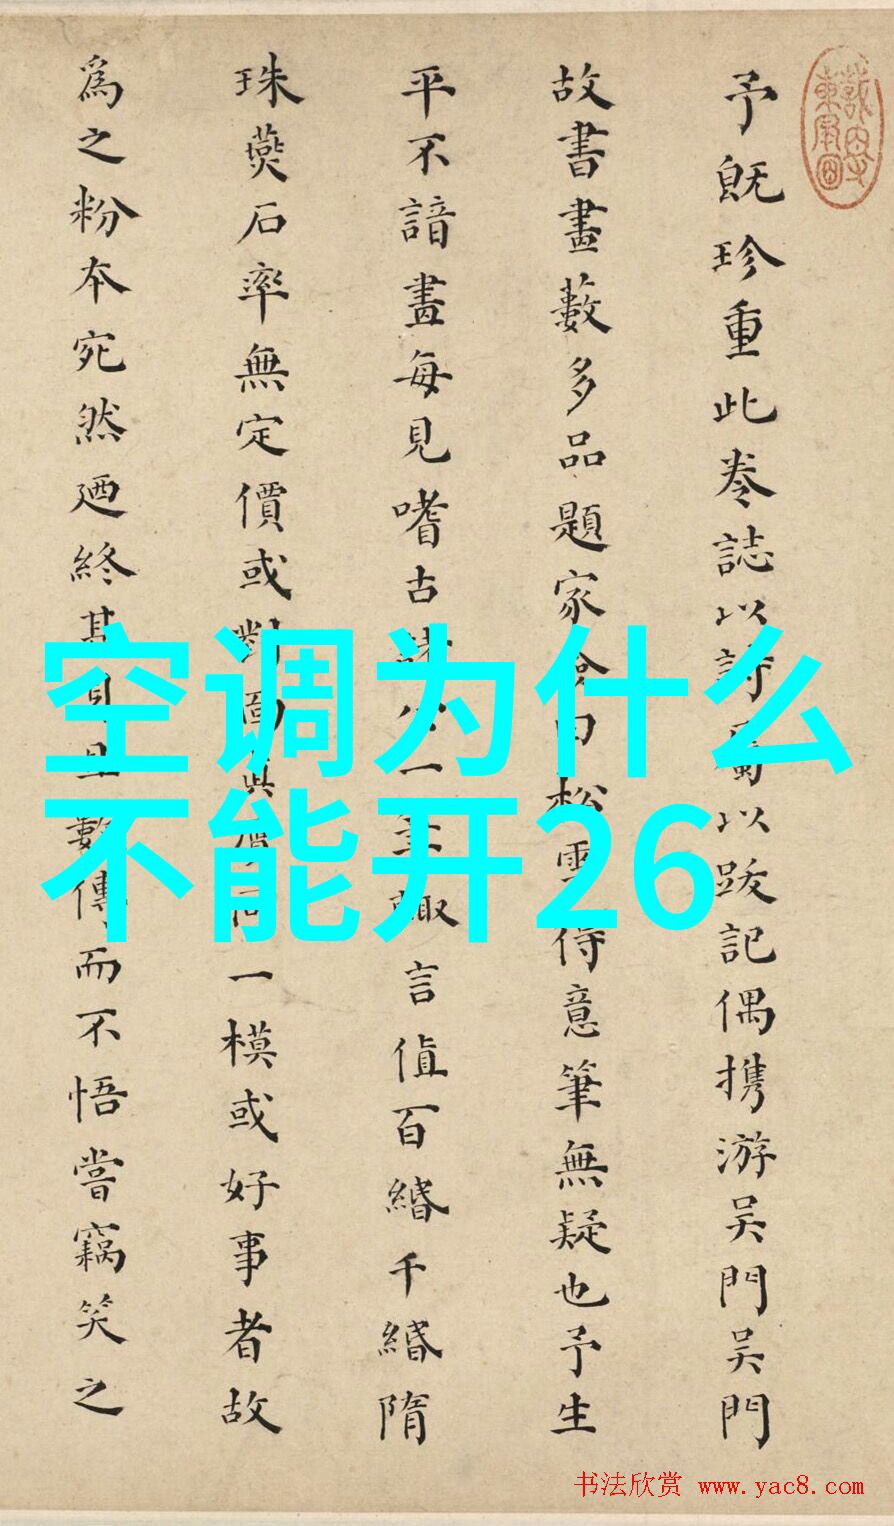 予既珍重此卷誌以詩蜀以跋記偶携游吴門吴門
故書畫藪多品題家僉曰松雪得意筆無疑也予生
平不諳畫每見嗜古諸公一筆趣言值百緡千緡隋
珠燕石率無定價或對圖真價同一模或好事者故
為之粉本宛然廼終其身且數傳而不悟嘗竊笑之
空调为什么
不能开26
书法欣赏 www.yac8.com